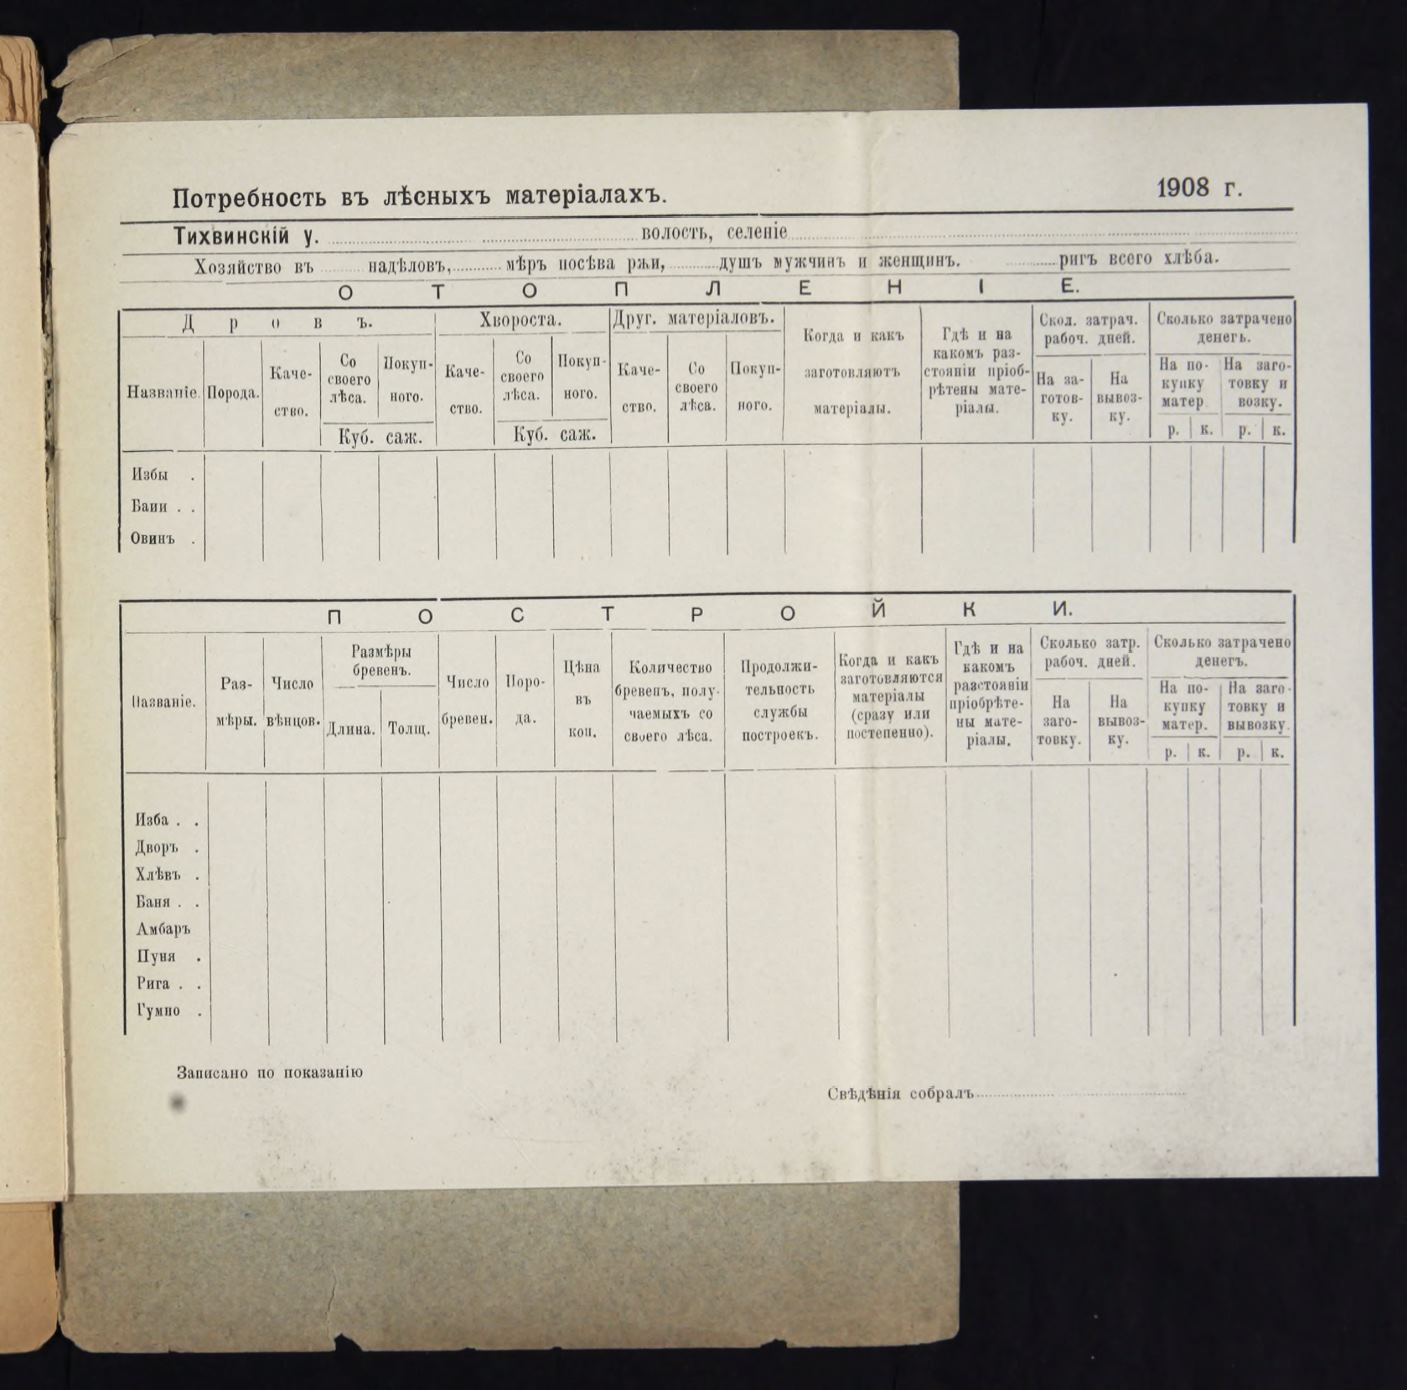 Потребность въ лѣсныхъ матеріалахъ. 1908 г.
Тихвинскій у. волость, селеніе
Хозяйство въ надѣловъ, мѣръ посѣва ржи, душъ мужчинъ и женщинъ. ригъ всего хлѣба.
ОТОПЛЕНІЕ.
Дровъ.
Названіе.
Порода.
Каче-
ство.
Со
своего
лѣса.
Покуп-
ного.
Куб. саж.
Хвороста.
Каче-
ство.
Со
своего
лѣса.
Покуп-
ного.
Куб. саж.
Друг. матеріаловъ.
Каче-
ство.
Со
своего
лѣса.
Покуп-
ного.
Когда и какъ
заготовляютъ
матеріалы.
Гдѣ и на
какомъ раз-
стояніи пріоб-
рѣтены мате-
ріалы.
Скол. затрач.
рабоч. дней.
На за-
готов-
ку.
На
вывоз-
ку.
Сколько затрачено
денегъ.
На по-
купку
матер
р. к.
На заго-
товку и
возку.
р. к.
Избы .
Бани . .
Овинъ .
ПОСТРОЙКИ.
Названіе.
Раз-
мѣры.
Число
вѣнцов.
Размѣры
бревенъ.
Длина.
Толщ.
Число
бревен.
Поро-
да.
Цѣна
въ
коп.
Количество
бревенъ, полу-
чаемыхъ со
своего лѣса.
Продолжи-
тельность
службы
построекъ.
Когда и какъ
заготовляются
матеріалы
(сразу или
постепенно).
Гдѣ и на
какомъ
разстояніи
пріобрѣте-
ны мате-
ріалы.
Сколько затр.
рабоч. дней.
На
заго-
товку.
На
вывоз-
ку.
Сколько затрачено
денегъ.
На по-
купку
матер.
р. к.
На заго-
товку и
вывозку.
р. к.
Изба . .
Дворъ .
Хлѣвъ .
Баня . .
Амбаръ
Пуня .
Рига . .
Гумно .
Записано по показанію
Свѣдѣнія собралъ